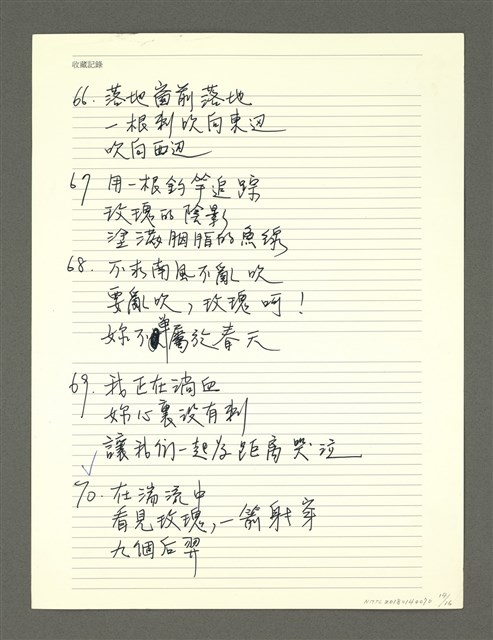 收藏記錄
66. 落地窗前落地
一根刺吹向東边
吹向西边
67 用一根釣竿追踪
玫瑰的陰影
塗滿胭脂的魚線
68. 不求南風不亂吹
要亂吹，玫瑰呵！
妳不單屬於春天
69. 我正在淌血
妳心裏没有刺
讓我们一起為距离哭泣
70. 在湍流中
看見玫瑰，一箭射穿
九個后羿